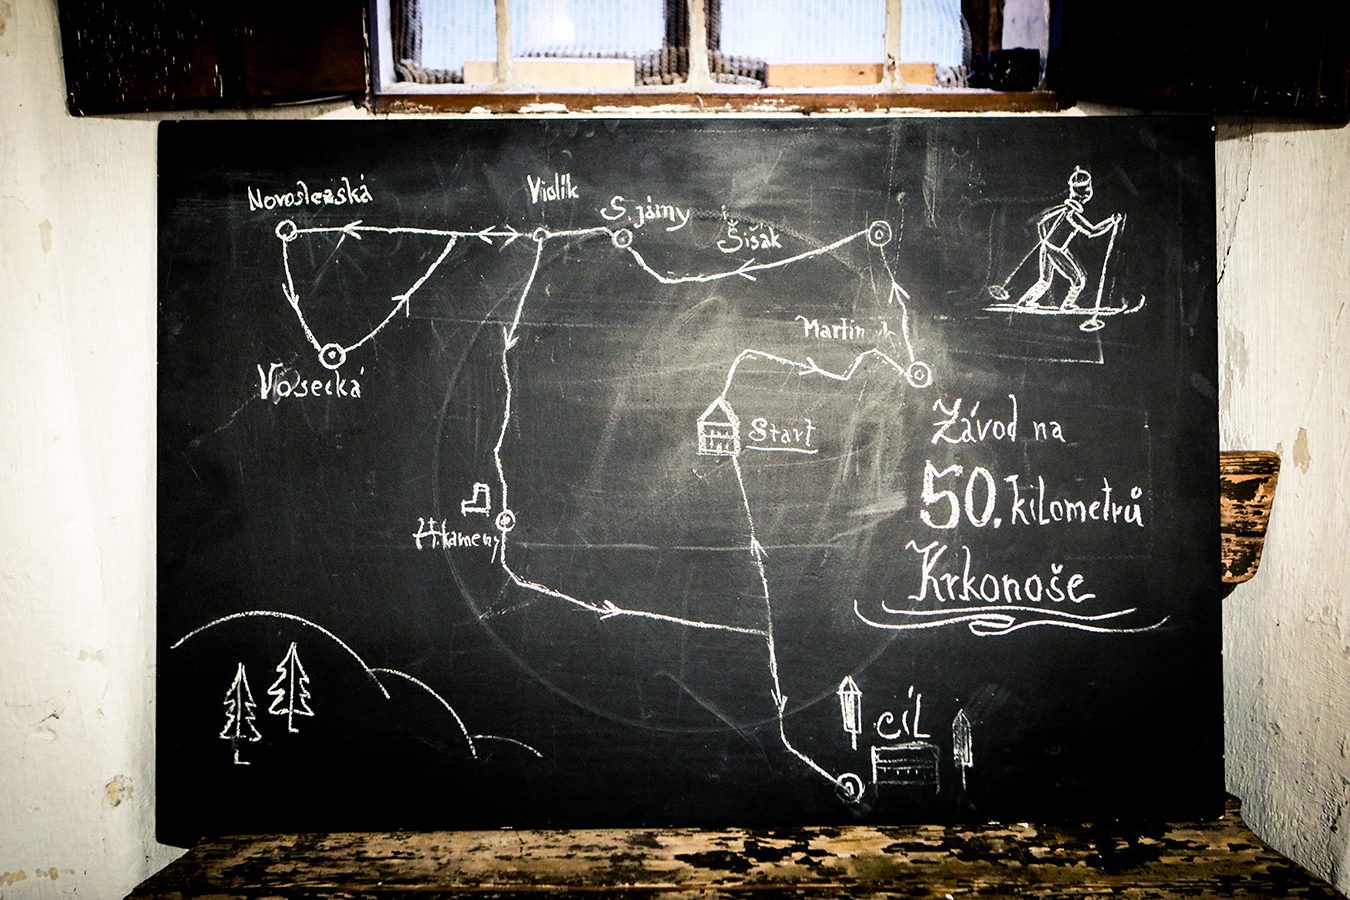 Novoslezská
Violík
S. jámy
Šišák
Vosecká
Martin
Start
H. kameny
Závod na
50. kilometrů
Krkonoše
CÍL